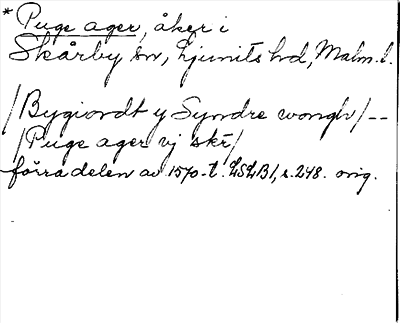 * Puge ager, åker i
Skårby sn, Ljunits hd, Malm. l.
/Bygiordt y Syndre wongh/--
/Puge ager vj skr/
förra delen av 1570-t. LSLB1, s. 248. orig.